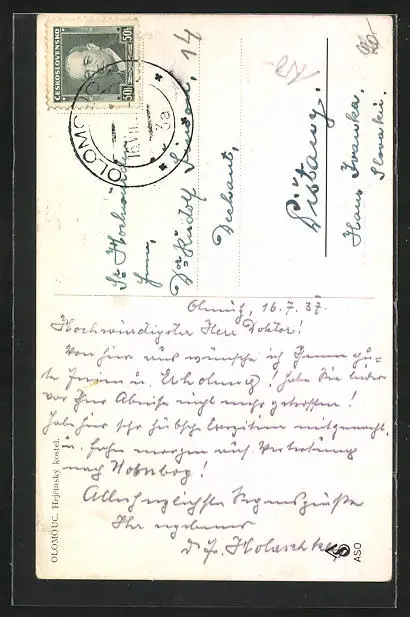 ČESKOSLOVENSKO
50h 50h
OLOMOUC
16.VII.
3a
14
Sr. Hochwürden
Herrn,
Dr. Rudolf
Dechant,
Pištany.
Haus Ivanka,
Slovakei.
Olmütz, 16.7.37.
Hochwürdigster Herr Doktor!
Von hier aus wünsche ich Ihnen gu-
te Ferien u. Erholung! Habe Sie leider
vor Ihrer Abreise nicht mehr getroffen!
Habe hier sehr hübsche Exerzitien mitgemacht,
u. fahre morgen nach Vertretung
nach
Allerherzlichste Segensgrüße
Ihr ergebener
OLOMOUC. Hejčínský kostel.
ASO